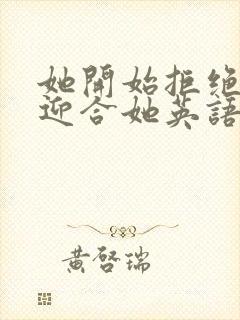 她開始拒絕
迎合她英語
黃啓瑞